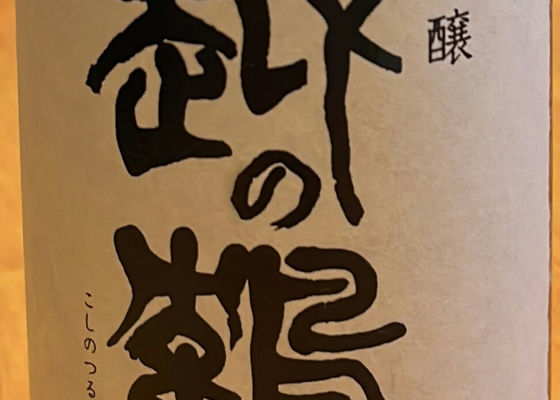 醸
越の鶴
こしのつる